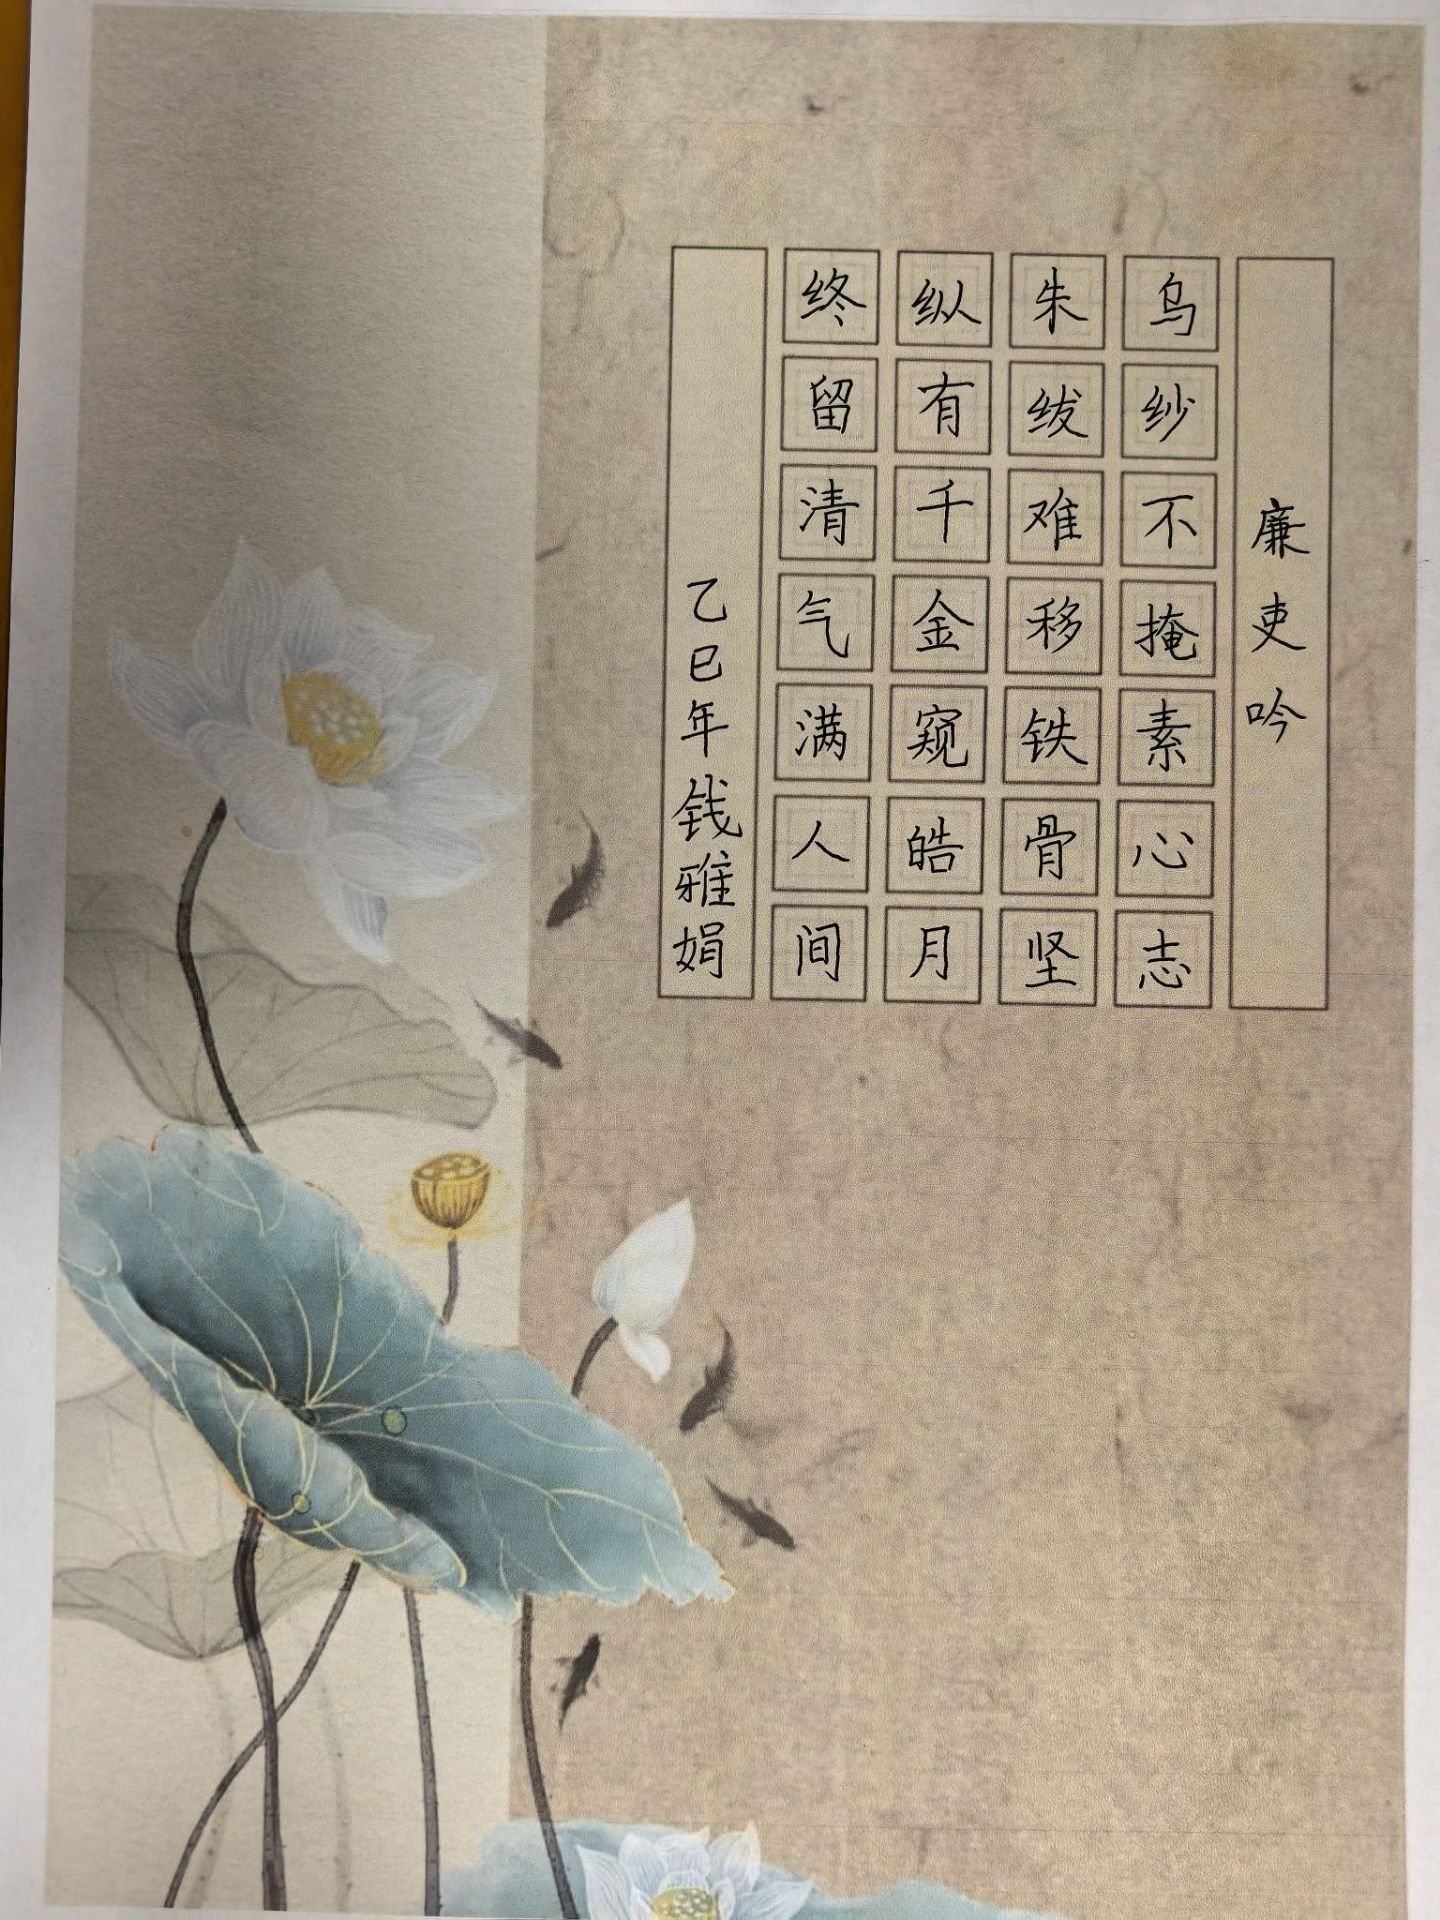 廉吏吟
乌纱不掩素心志
朱绂难移铁骨坚
纵有千金窥皓月
终留清气满人间
乙巳年钱雅娟